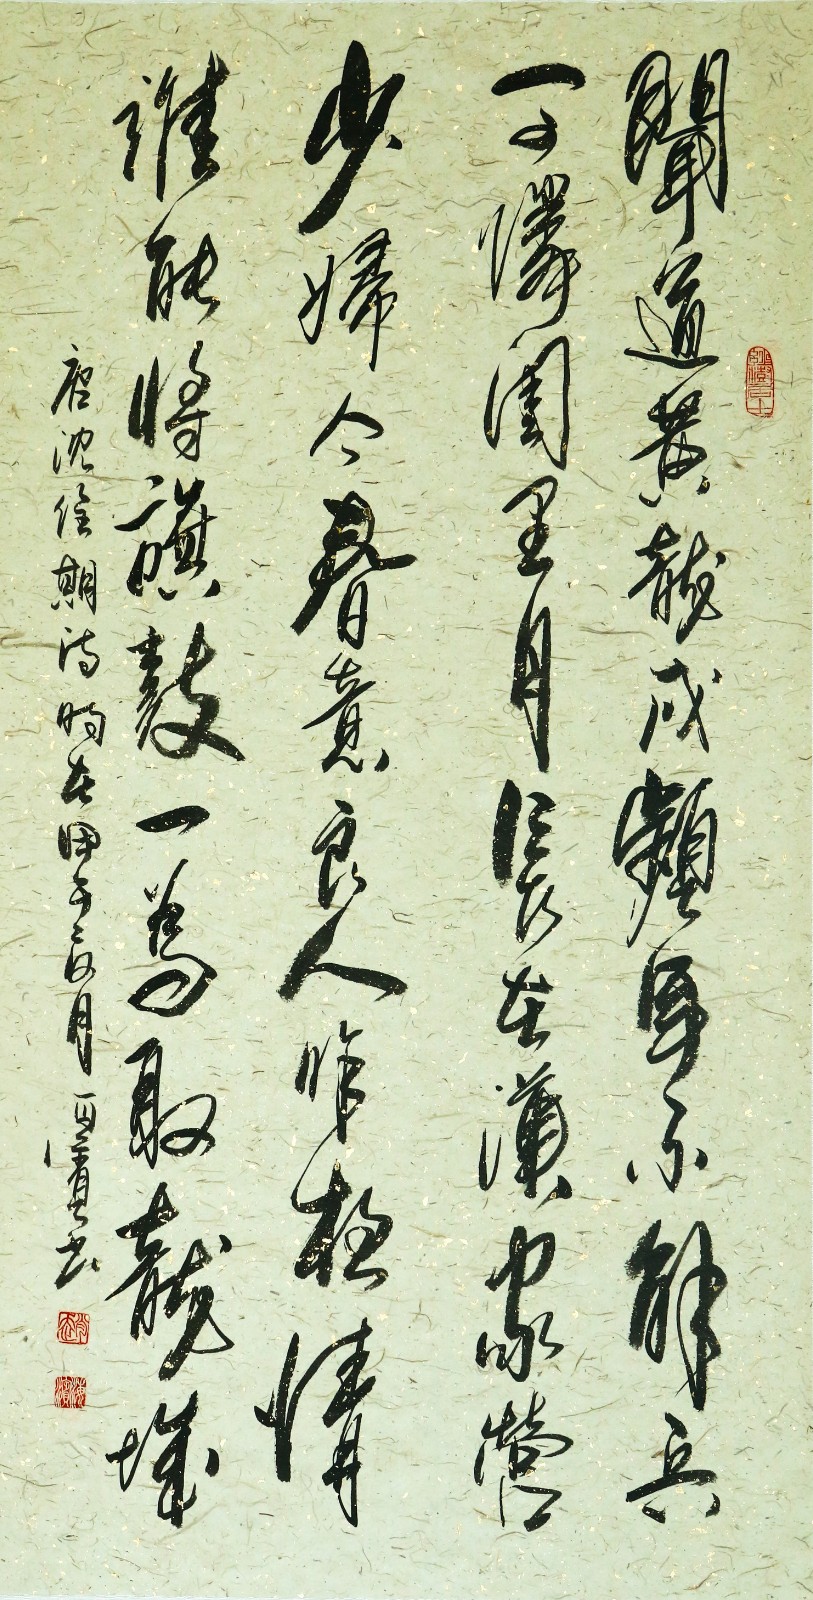 聞道黃龍戍頻年不解兵
可憐閨里月長在漢家營
少婦今春意良人昨夜情
誰能將旗鼓一為取龍城
唐沈佺期詩時在甲子夏月書